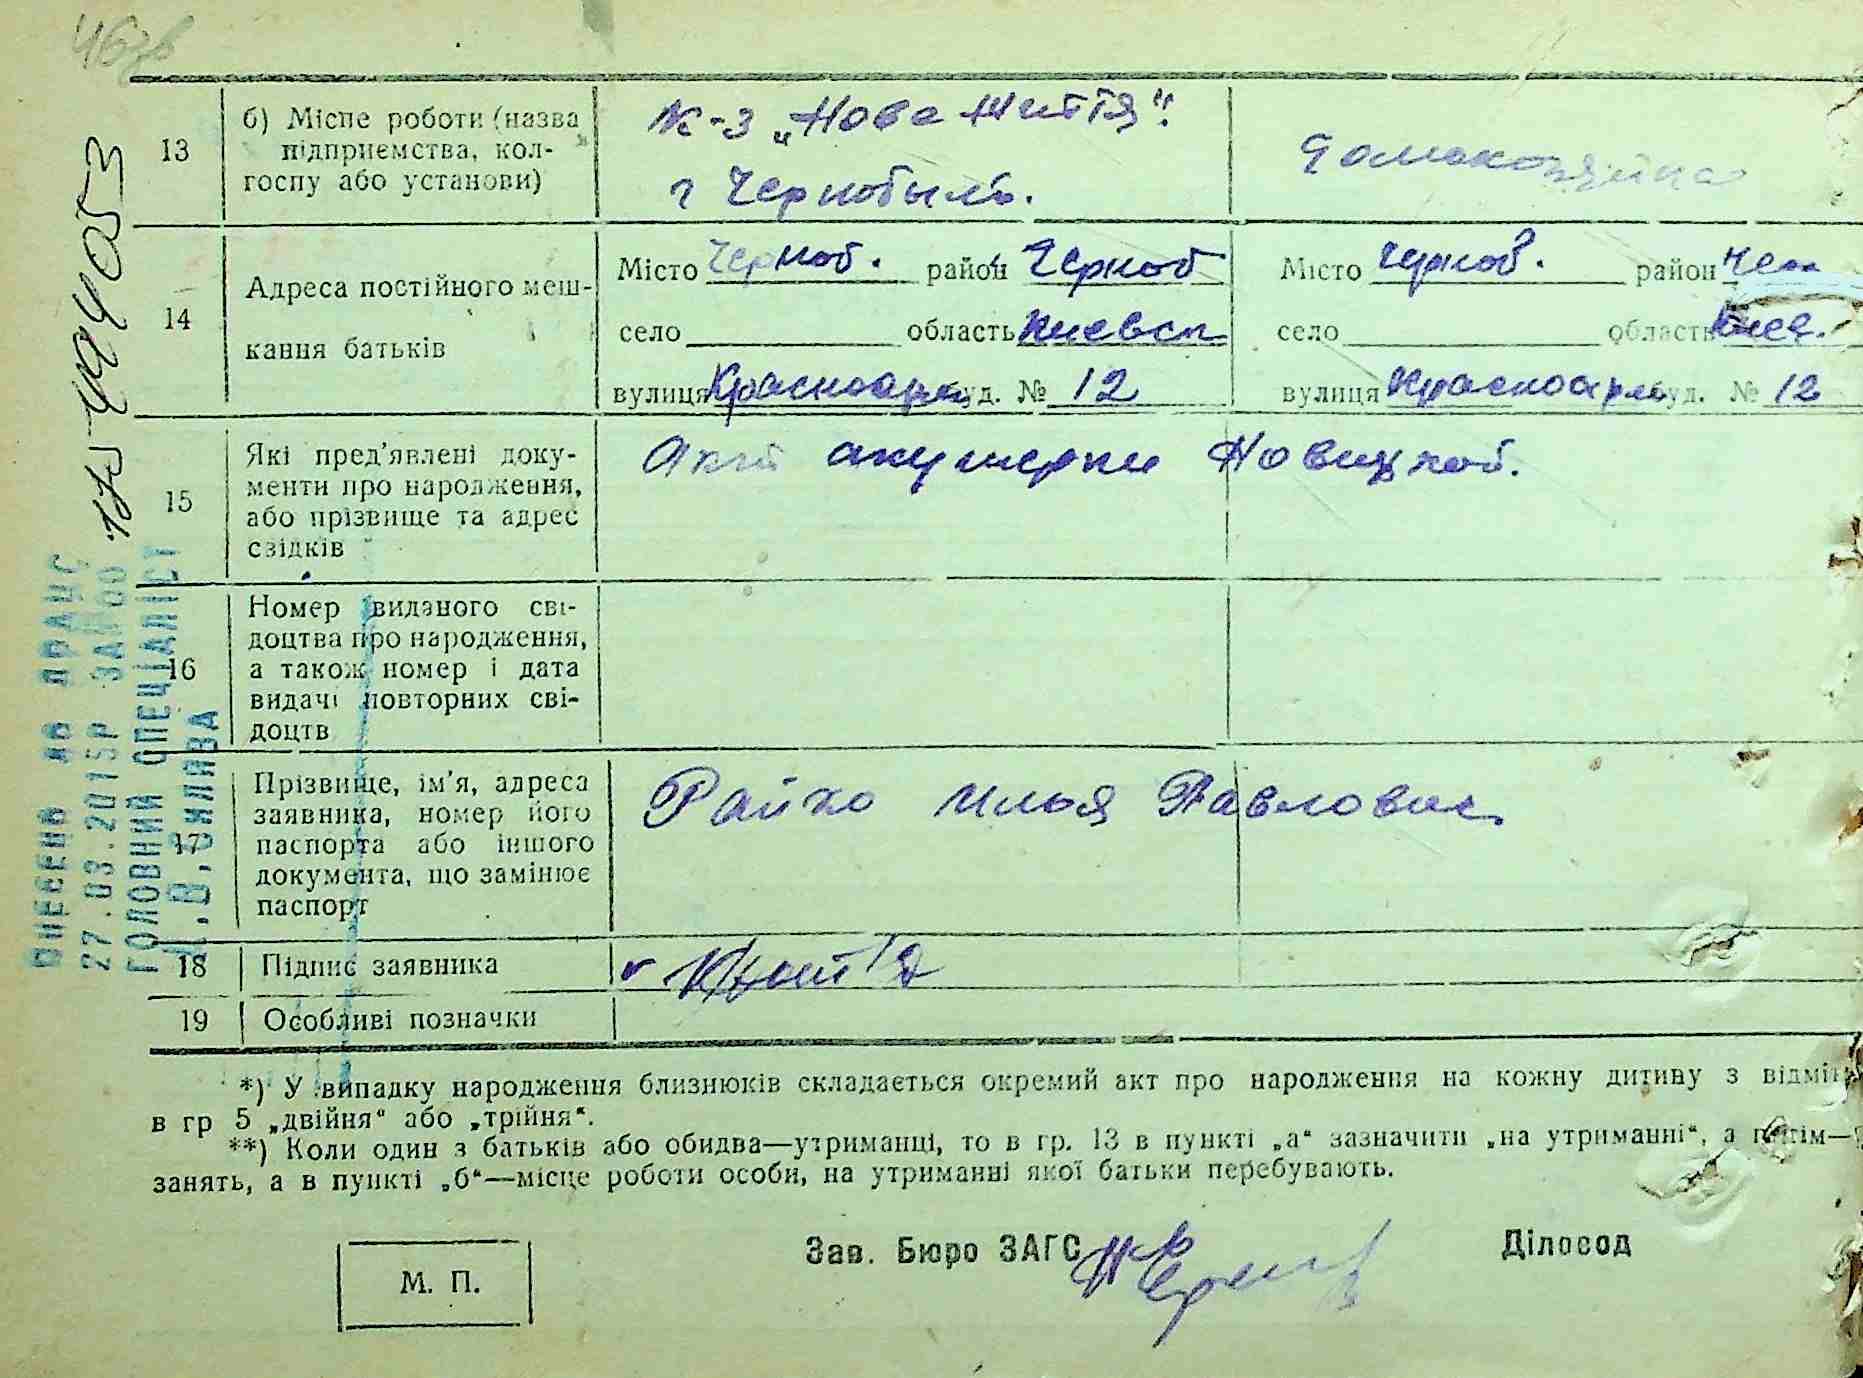 463в
13
б) Місце роботи (назва
підприємства, кол-
госпу або установи)
К-з „Нове життя".
г Чернобыль.
Домохозяйка
14
Адреса постійного меш-
кання батьків
Місто Черноб. район Черноб
село область Киевск
вулиця Красноарм буд. № 12
Місто Черноб. район Чер
село область Киев.
вулиця Красноарм буд. № 12
15
Які пред'явлені доку-
менти про народження,
або прізвище та адрес
свідків
Акт акушерки Новицкой.
16
Номер виданого сві-
доцтва про народження,
а також номер і дата
видачі повторних сві-
доцтв
17
Прізвище, ім'я, адреса
заявника, номер його
паспорта або іншого
документа, що замінює
паспорт
Райхо Илья Павлович
18
Підпис заявника
19
Особливі позначки
*) У випадку народження близнюків складається окремий акт про народження на кожну дитину з відміт
в гр 5 „двійня“ або „трійня“.
**) Коли один з батьків або обидва—утриманці, то в гр. 13 в пункті „а“ зазначити „на утриманні“, а потім—
занять, а в пункті „б“—місце роботи особи, на утриманні якої батьки перебувають.
М. П.
Зав. Бюро ЗАГС
Діловод
ВНЕСЕНО ДО ДРАЦС
27.03.2015Р
ГОЛОВНИЙ СПЕЦІАЛІСТ